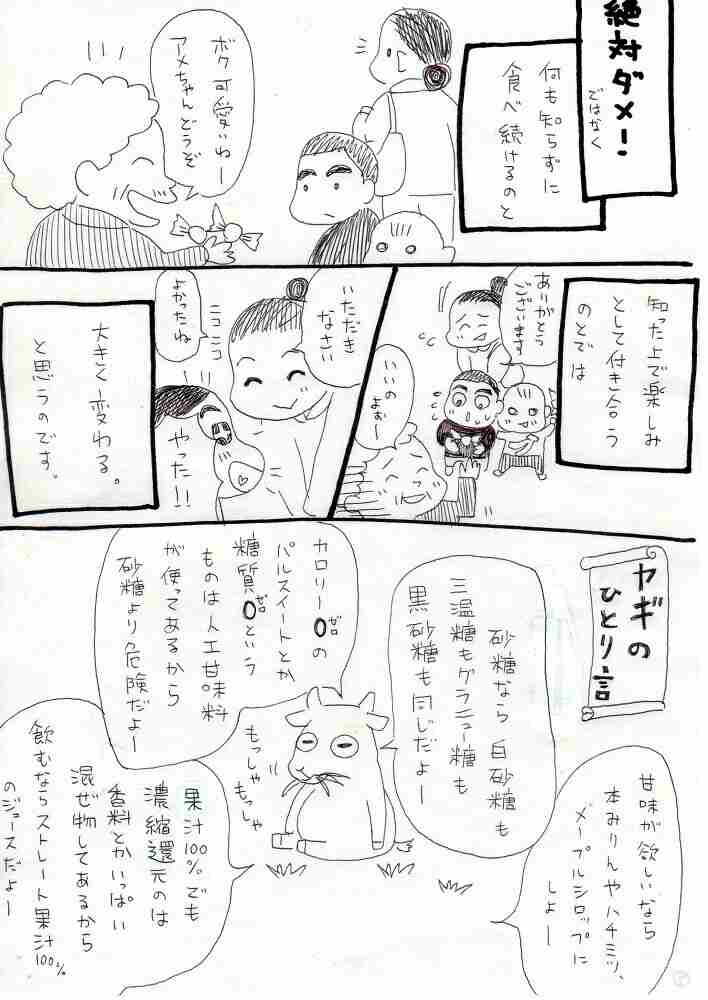 絶対ダメ！
ではなく
何も知らずに
食べ続けるのと
ボク可愛いわー
アメちゃんどうぞ
知った上で楽しみ
として付き合う
のとでは
ありがとう
ございます
いいの
よぉー
いただき
なさい
ニコニコ
よかったね
やった!!
大きく変わる。
と思うのです。
ヤギの
ひとり言
甘味が欲しいなら
本みりんやハチミツ、
メープルシロップに
しよー
砂糖なら白砂糖も
三温糖もグラニュー糖も
黒砂糖も同じだよー
カロリー0の
ゼロ
パルスイートとか
糖質0という
ゼロ
ものは人工甘味料
が使ってあるから
砂糖より危険だよー
もっしゃ
もっしゃ
果汁100%でも
濃縮還元のは
香料とかいっぱい
混ぜ物してあるから
飲むならストレート果汁100%
のジュースだよー